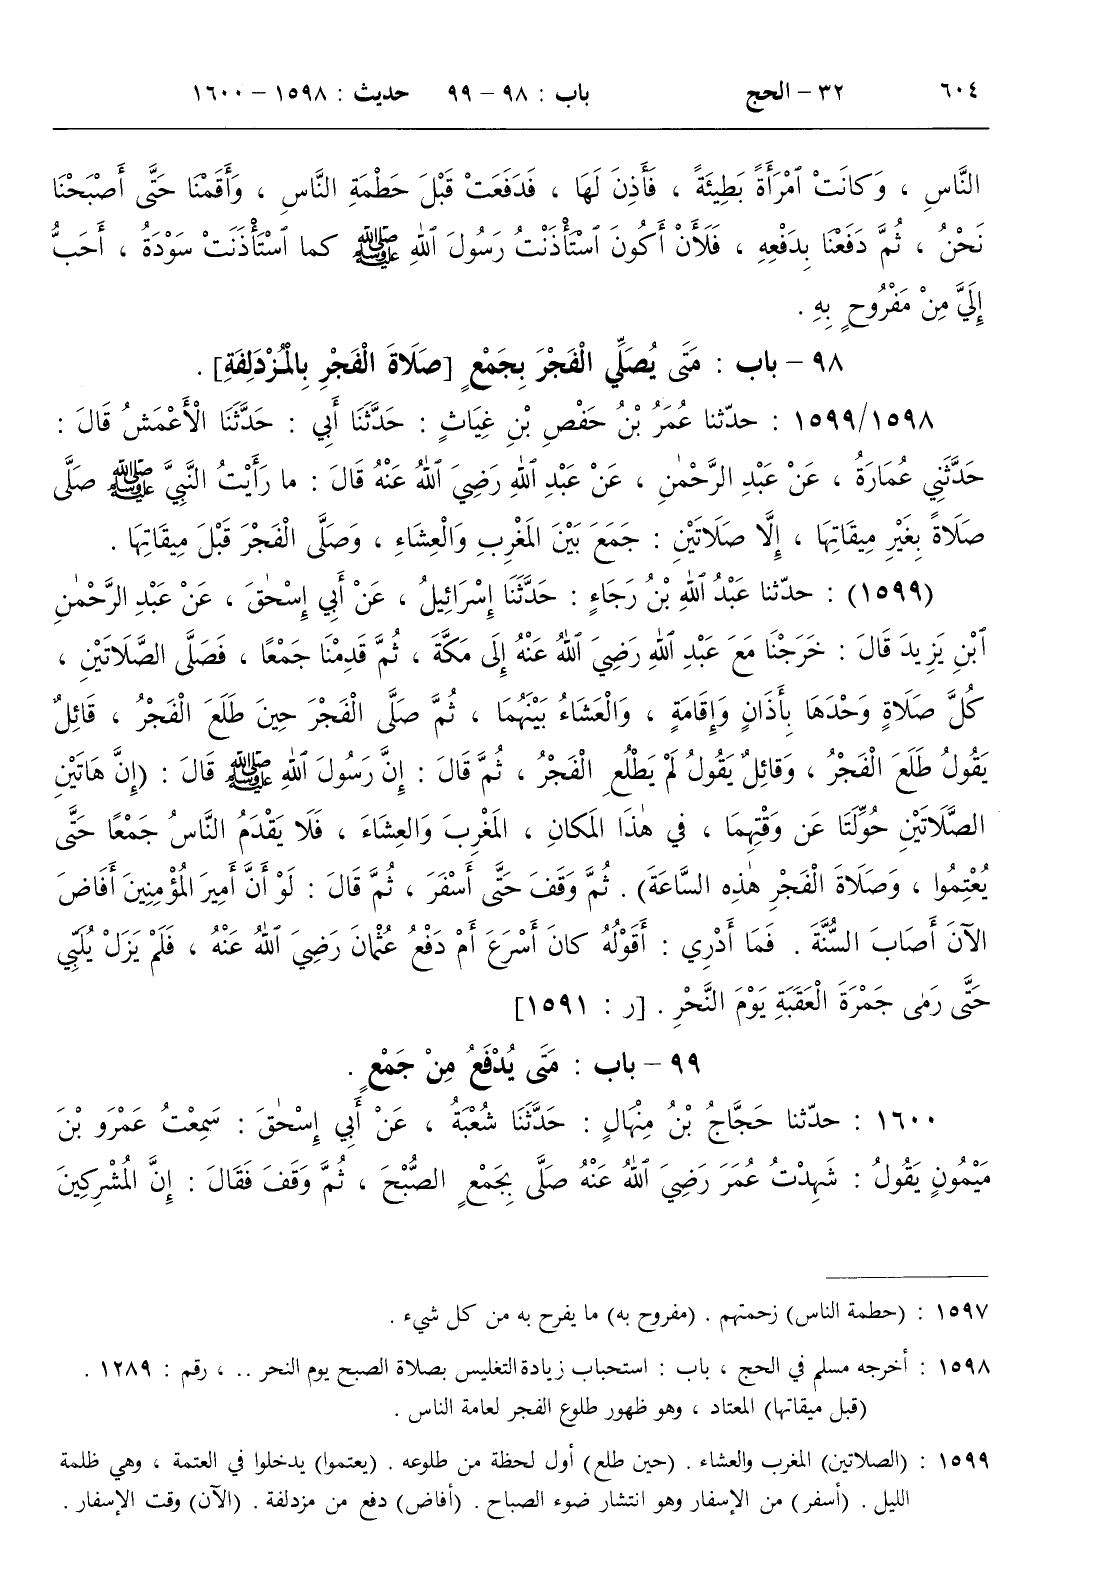 ٦٠٤ ٣٢ - الحج باب : ٩٨ - ٩٩ حديث : ١٥٩٨ - ١٦٠٠
النَّاسِ ، وَكَانَتْ ٱمْرَأَةً بَطِيئَةً ، فَأَذِنَ لَهَا ، فَدَفَعَتْ قَبْلَ حَطْمَةِ النَّاسِ ، وَأَقَمْنَا حَتَّى أَصْبَحْنَا
نَحْنُ ، ثُمَّ دَفَعْنَا بِدَفْعِهِ ، فَلَأَنْ أَكُونَ ٱسْتَأْذَنْتُ رَسُولَ ٱللهِ ﷺ كما ٱسْتَأْذَنَتْ سَوْدَةُ ، أَحَبُّ
إِلَيَّ مِنْ مَفْرُوحٍ بِهِ .
٩٨ - باب : مَتَى يُصَلِّي الْفَجْرَ بِجَمْعٍ [صَلَاةَ الْفَجْرِ بِالْمُزْدَلِفَةِ] .
١٥٩٩/١٥٩٨ : حدّثنا عُمَرُ بْنُ حَفْصِ بْنِ غِيَاثٍ : حَدَّثَنَا أَبِي : حَدَّثَنَا الْأَعْمَشُ قَالَ :
حَدَّثَنِي عُمَارَةُ ، عَنْ عَبْدِ الرَّحْمٰنِ ، عَنْ عَبْدِ ٱللهِ رَضِيَ ٱللهُ عَنْهُ قَالَ : ما رَأَيْتُ النَّبِيَّ ﷺ صَلَّى
صَلَاةً بِغَيْرِ مِيقَاتِهَا ، إِلَّا صَلَاتَيْنِ : جَمَعَ بَيْنَ المَغْرِبِ وَالْعِشَاءِ ، وَصَلَّى الْفَجْرَ قَبْلَ مِيقَاتِهَا .
(١٥٩٩) : حدّثنا عَبْدُ ٱللهِ بْنُ رَجَاءٍ : حَدَّثَنَا إِسْرَائِيلُ ، عَنْ أَبِي إِسْحٰقَ ، عَنْ عَبْدِ الرَّحْمٰنِ
ٱبْنِ يَزِيدَ قَالَ : خَرَجْنَا مَعَ عَبْدِ ٱللهِ رَضِيَ ٱللهُ عَنْهُ إِلَى مَكَّةَ ، ثُمَّ قَدِمْنَا جَمْعًا ، فَصَلَّى الصَّلَاتَيْنِ ،
كُلَّ صَلَاةٍ وَحْدَهَا بِأَذَانٍ وَإِقَامَةٍ ، وَالْعَشَاءُ بَيْنَهُمَا ، ثُمَّ صَلَّى الْفَجْرَ حِينَ طَلَعَ الْفَجْرُ ، قَائِلٌ
يَقُولُ طَلَعَ الْفَجْرُ ، وَقائِلٌ يَقُولُ لَمْ يَطْلُعِ الْفَجْرُ ، ثُمَّ قَالَ : إِنَّ رَسُولَ ٱللهِ ﷺ قَالَ : (إِنَّ هَاتَيْنِ
الصَّلَاتَيْنِ حُوِّلَتَا عَن وَقْتِهِمَا ، في هٰذَا المَكانِ ، المَغْرِبَ وَالعِشَاءَ ، فَلَا يَقْدَمُ النَّاسُ جَمْعًا حَتَّى
يُعْتِمُوا ، وَصَلَاةَ الْفَجْرِ هٰذِهِ السَّاعَةَ) . ثُمَّ وَقَفَ حَتَّى أَسْفَرَ ، ثُمَّ قَالَ : لَوْ أَنَّ أَمِيرَ المُؤْمِنِينَ أَفَاضَ
الآنَ أَصَابَ السُّنَّةَ . فَمَا أَدْرِي : أَقَوْلُهُ كانَ أَسْرَعَ أَمْ دَفْعُ عُثْمَانَ رَضِيَ ٱللهُ عَنْهُ ، فَلَمْ يَزَلْ يُلَبِّي
حَتَّى رَمٰى جَمْرَةَ الْعَقَبَةِ يَوْمَ النَّحْرِ . [ر : ١٥٩١]
٩٩ - باب : مَتَى يُدْفَعُ مِنْ جَمْعٍ .
١٦٠٠ : حدّثنا حَجَّاجُ بْنُ مِنْهَالٍ : حَدَّثَنَا شُعْبَةُ ، عَنْ أَبِي إِسْحٰقَ : سَمِعْتُ عَمْرَو بْنَ
مَيْمُونٍ يَقُولُ : شَهِدْتُ عُمَرَ رَضِيَ ٱللهُ عَنْهُ صَلَّى بِجَمْعٍ الصُّبْحَ ، ثُمَّ وَقَفَ فَقَالَ : إِنَّ المُشْرِكِينَ
١٥٩٧ : (حطمة الناس) زحمتهم . (مفروح به) ما يفرح به من كل شيء .
١٥٩٨ : أخرجه مسلم في الحج ، باب : استحباب زيادة التغليس بصلاة الصبح يوم النحر .. ، رقم : ١٢٨٩ .
(قبل ميقاتها) المعتاد ، وهو ظهور طلوع الفجر لعامة الناس .
١٥٩٩ : (الصلاتين) المغرب والعشاء . (حين طلع) أول لحظة من طلوعه . (يعتموا) يدخلوا في العتمة ، وهي ظلمة
الليل . (أسفر) من الإسفار وهو انتشار ضوء الصباح . (أفاض) دفع من مزدلفة . (الآن) وقت الإسفار .